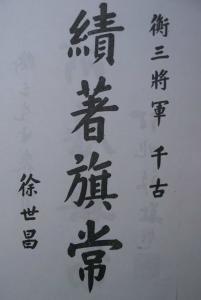 衡三將軍 千古
績著旂常
徐世昌